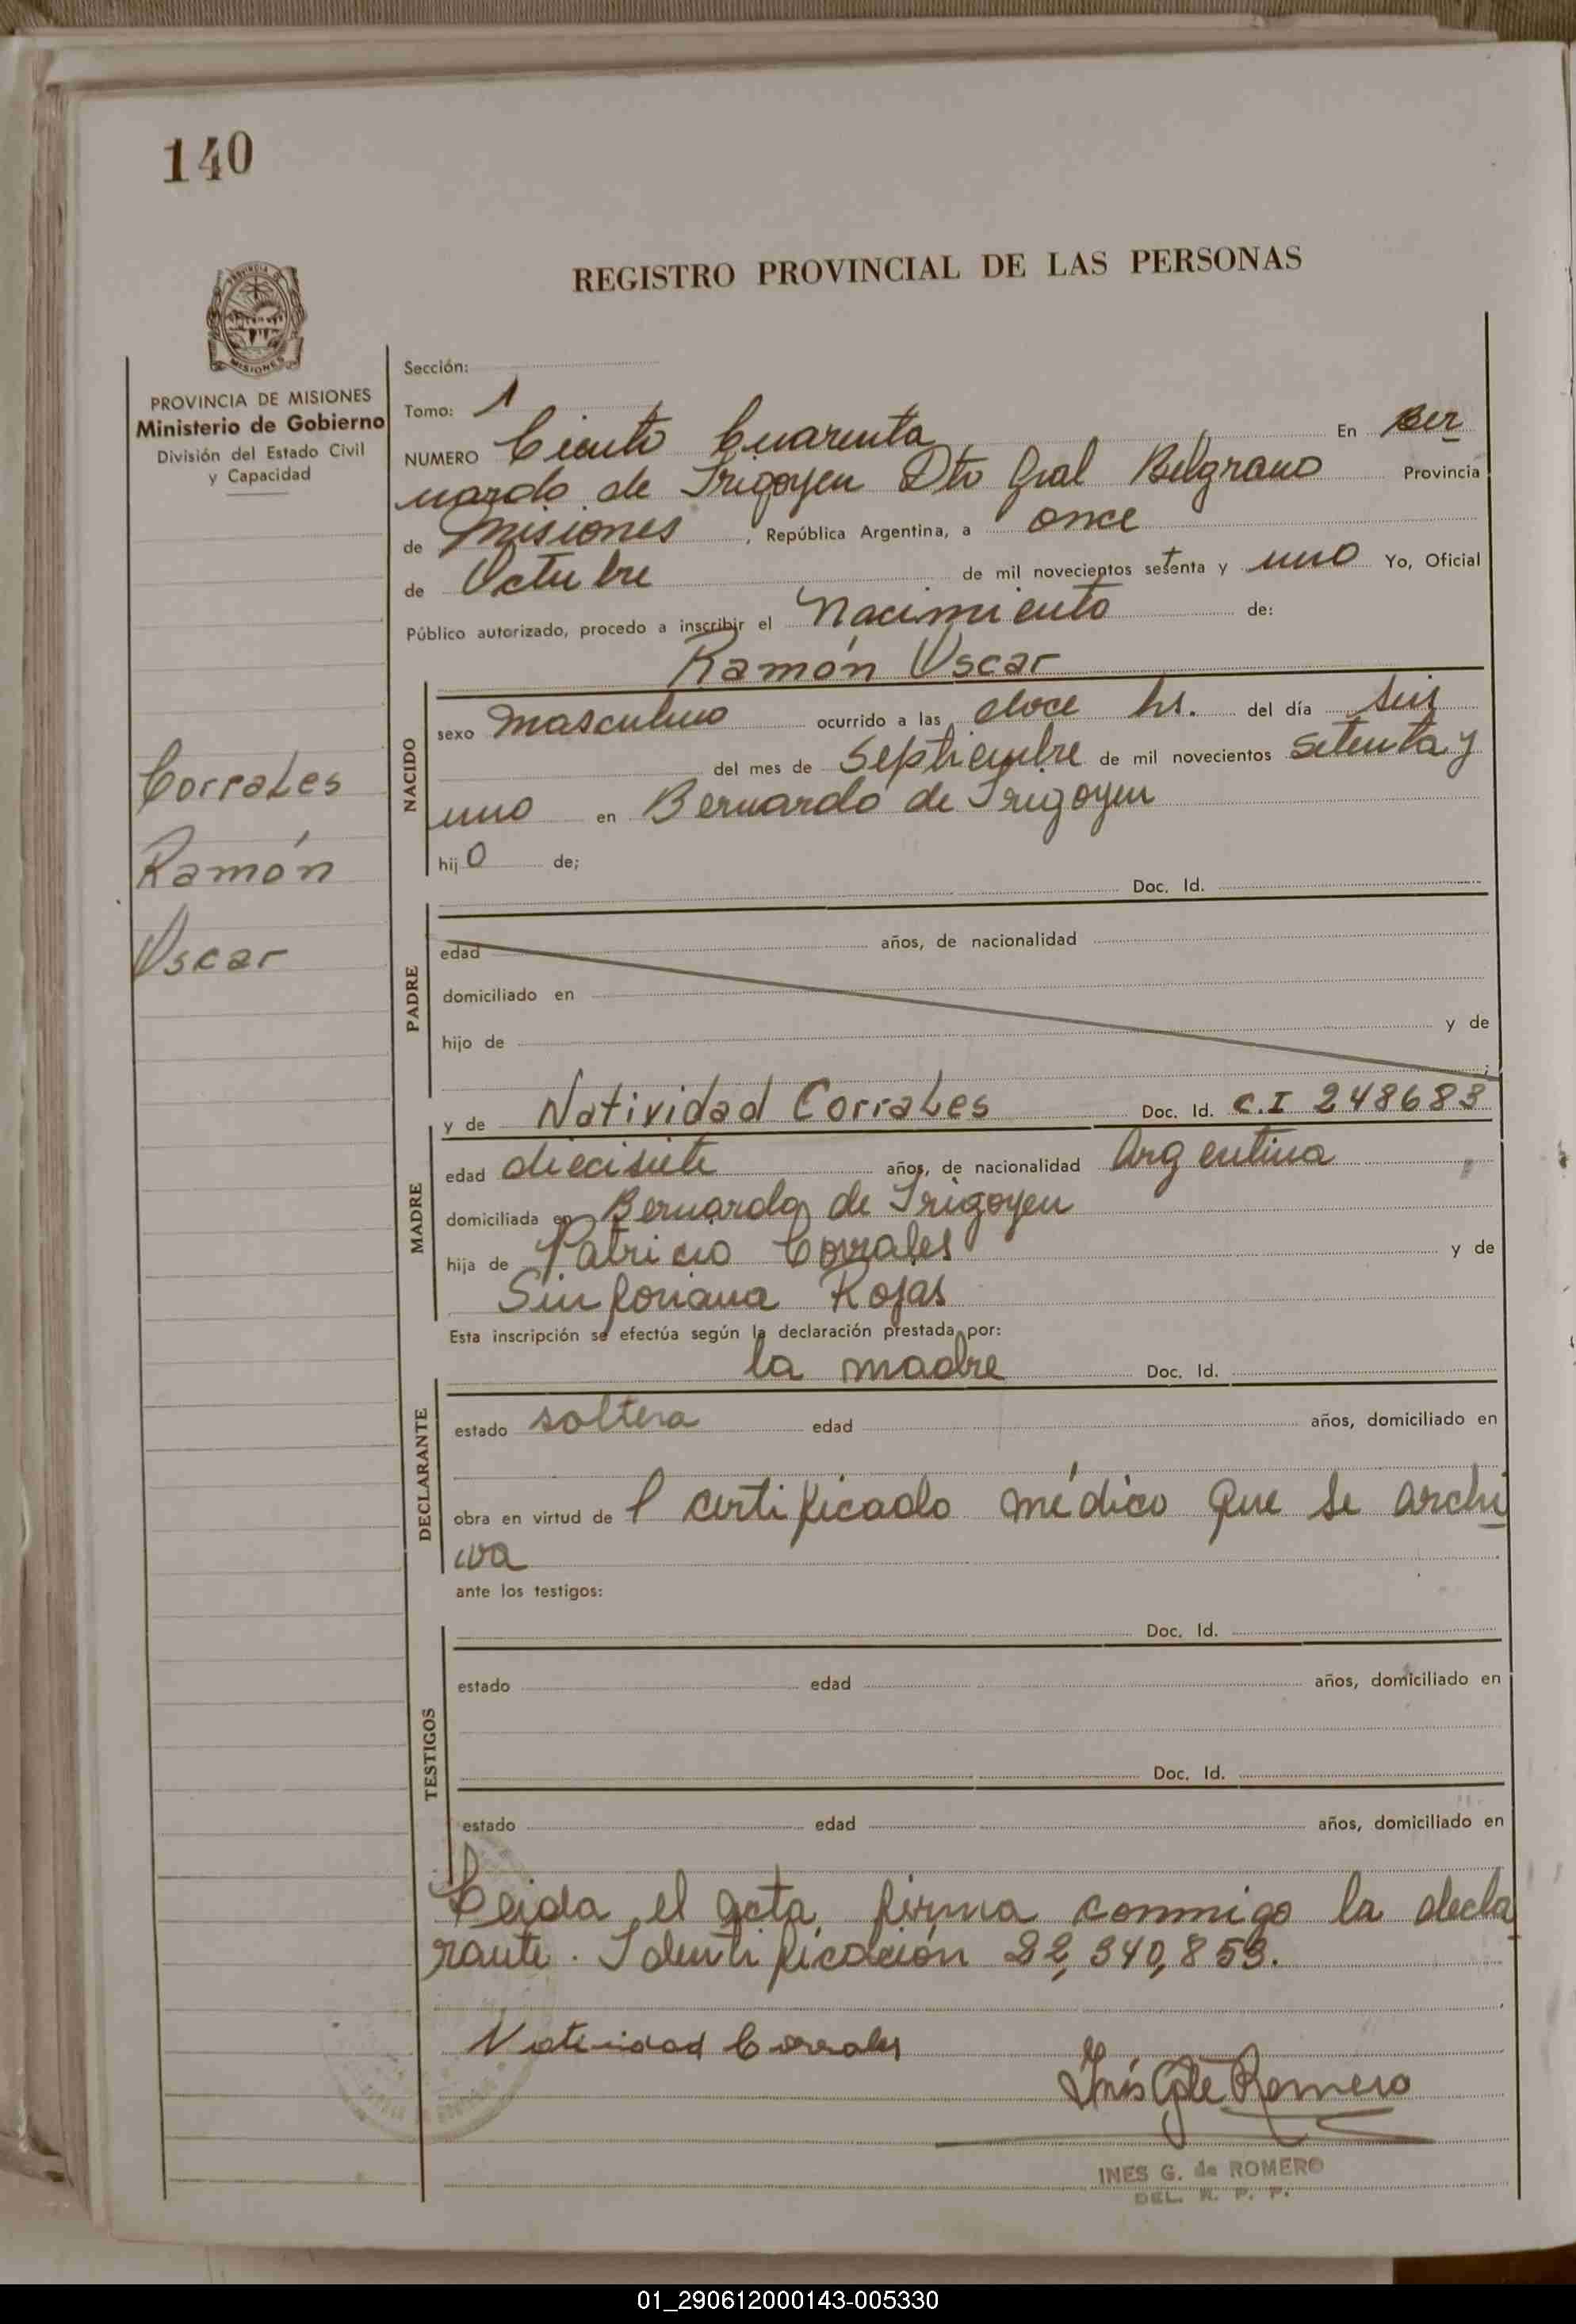 140
REGISTRO PROVINCIAL DE LAS PERSONAS
PROVINCIA DE
MISIONES
PROVINCIA DE MISIONES
Ministerio de Gobierno
División del Estado Civil
y Capacidad
Corrales
Ramón
Oscar
Sección:
Tomo: 1
NUMERO Ciento Cuarenta En Ber
nardo de Irigoyen Dto Gral Belgrano Provincia
de Misiones, República Argentina, a once
de Octubre de mil novecientos setenta y uno Yo, Oficial
Público autorizado, procedo a inscribir el Nacimiento de:
Ramón Oscar
NACIDO
sexo masculino ocurrido a las doce hs. del día seis
del mes de Septiembre de mil novecientos setenta y
uno en Bernardo de Irigoyen
hijo de;
Doc. Id.
PADRE
edad años, de nacionalidad
domiciliado en
hijo de y de
;
y de Natividad Corrales Doc. Id. C.I 248683
MADRE
edad diecisiete años, de nacionalidad Argentina
domiciliada en Bernardo de Irigoyen
hija de Patricio Corrales y de
Sinforiana Rojas
Esta inscripción se efectúa según la declaración prestada por:
la madre Doc. Id.
DECLARANTE
estado soltera edad años, domiciliado en
obra en virtud de l certificado médico que se archi
va
ante los testigos:
Doc. Id.
TESTIGOS
estado edad años, domiciliado en
Doc. Id.
estado edad años, domiciliado en
Leida el acta, firma conmigo la decla
rante. Identificación 22,340,853.
Natividad Corrales
Inés G de Romero
INES G. de ROMERO
DEL. R. P. P.
01_290612000143-005330